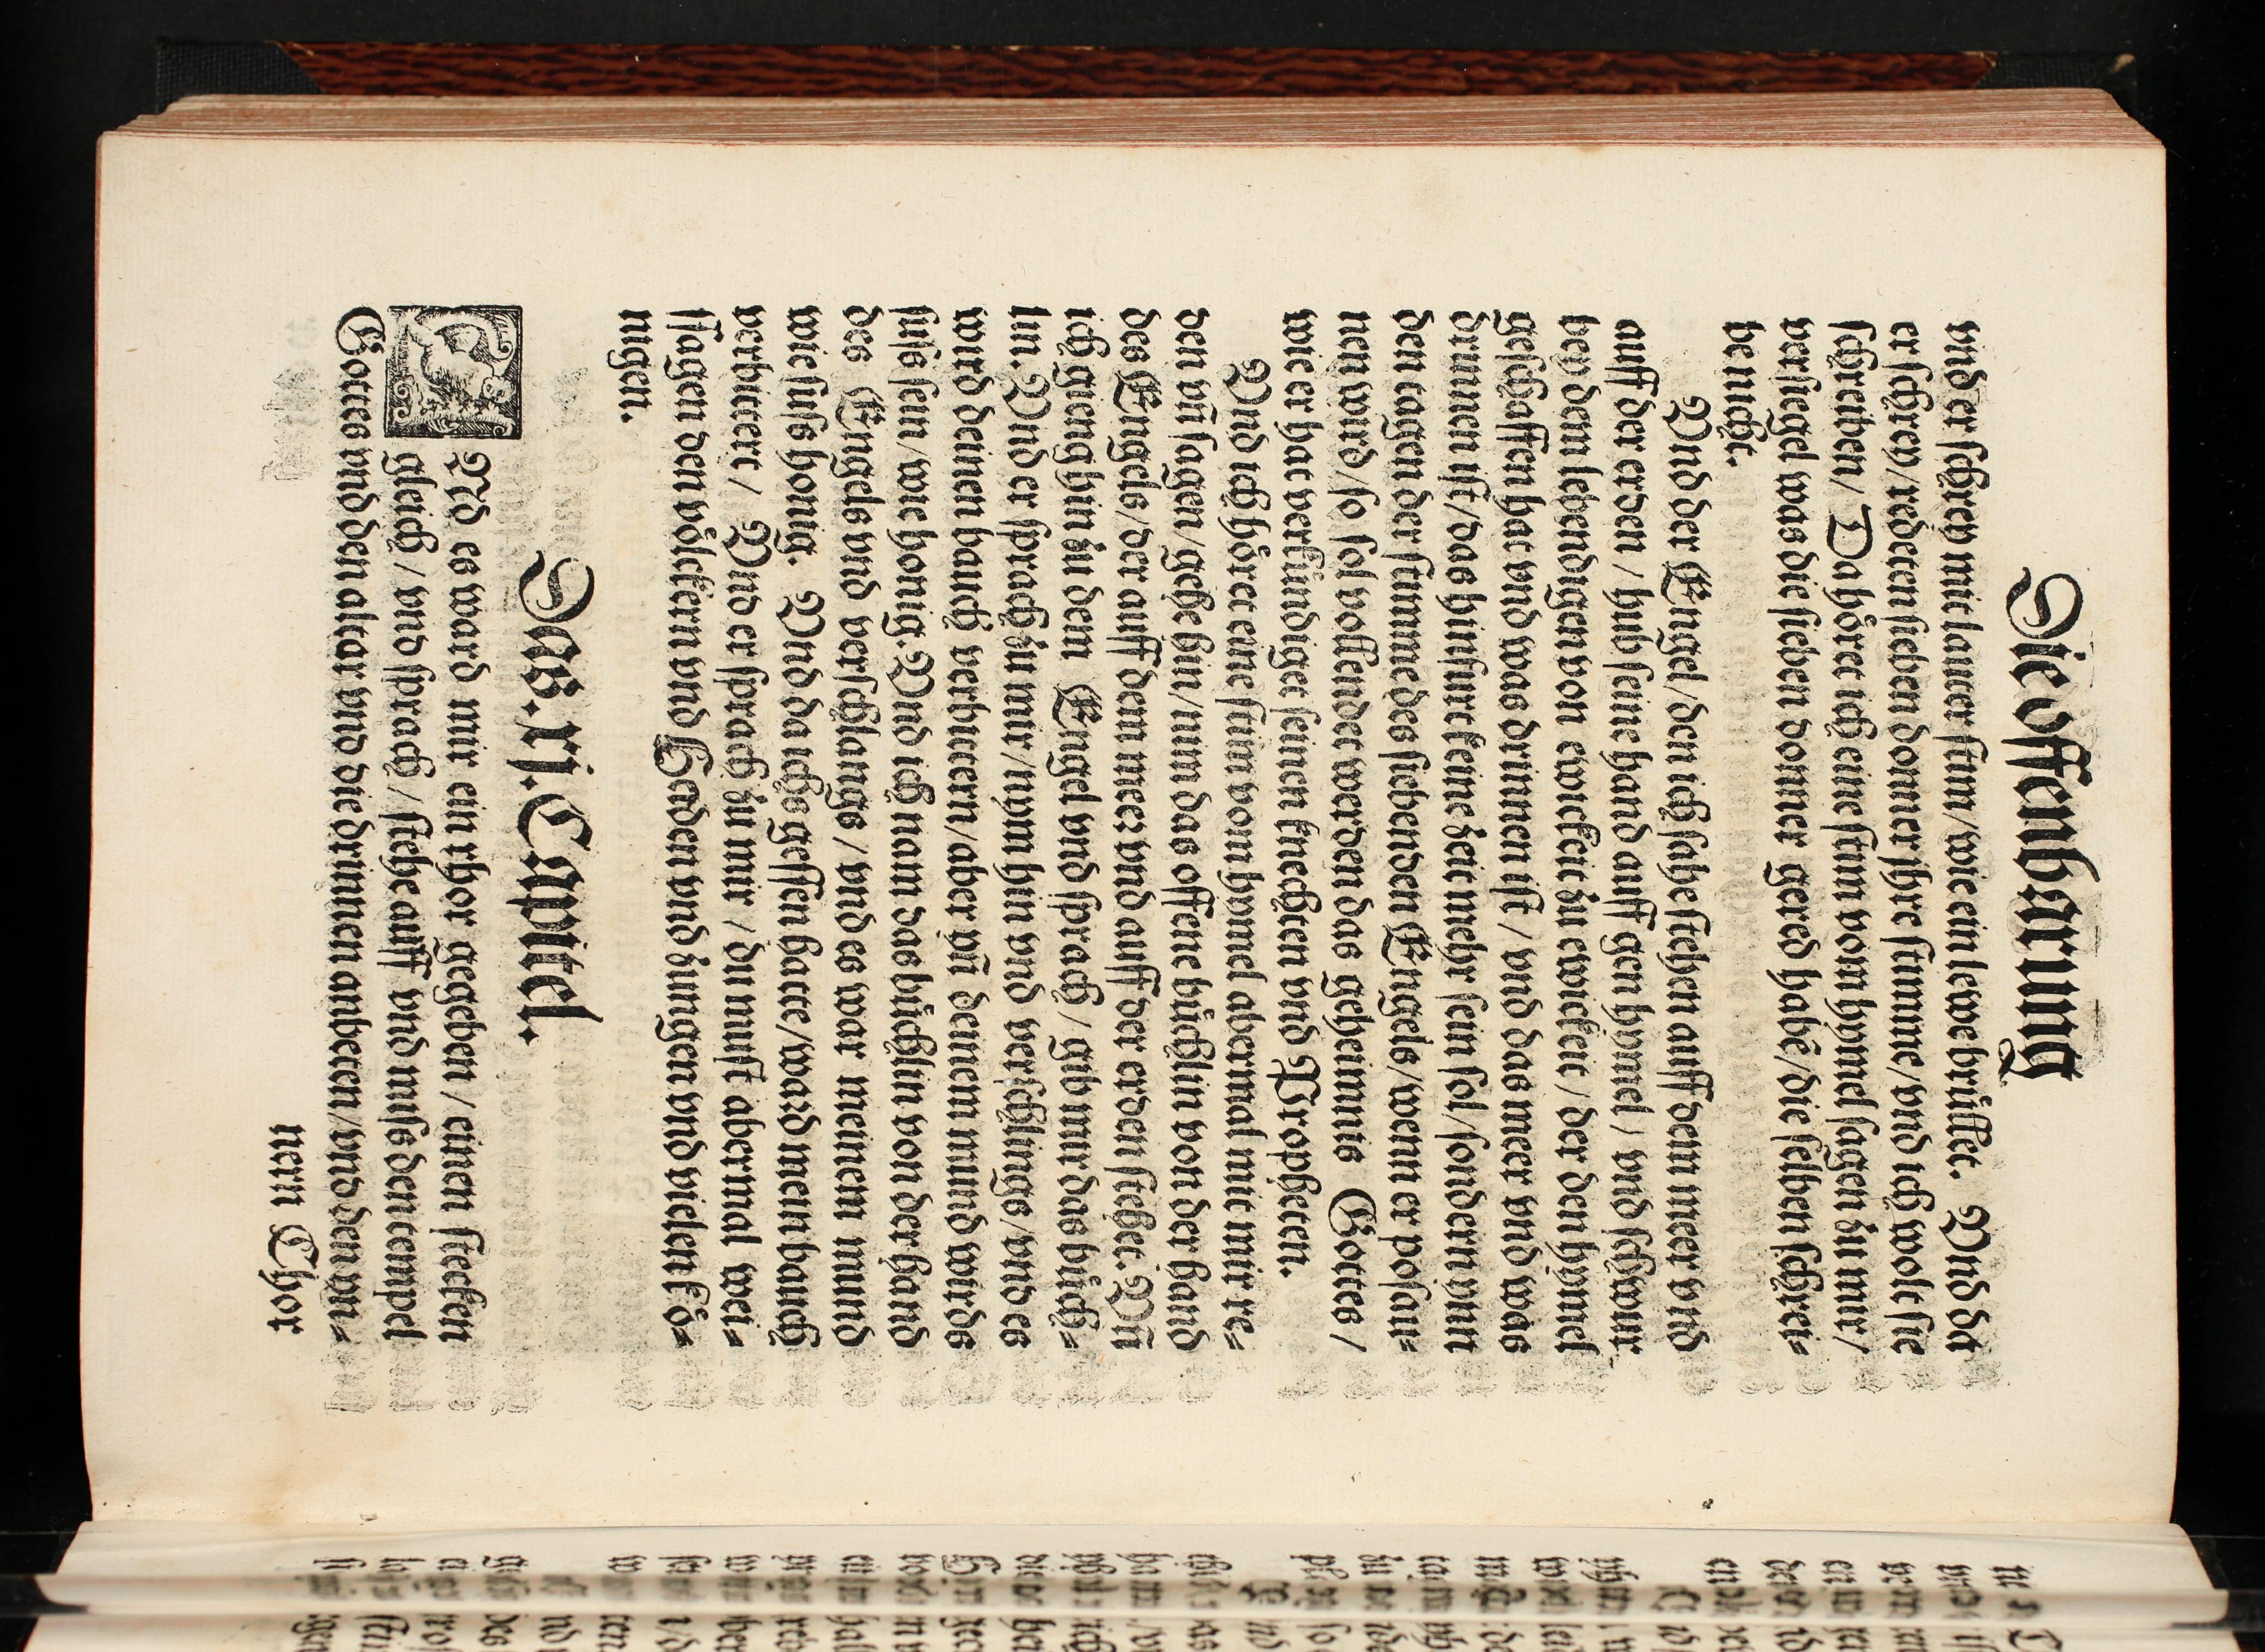 Die offenbarung
vnd er schrey mit lauter stim/wie ein lewe brüllet. Vnd da
er schrey/redeten sieben donner jhre stimme/vnd ich wolt sie
schreiben/ Da höret ich eine stim vom hymel sagen zu mir/
versiegel was die sieben donner gered habē/die selben schrei⸗
be nicht.
Vnd der Engel/den ich sahe stehen auff dem meer vnd
auff der erden/hub seine hand auff gen hymel/vnd schwur
bey dem lebendigen von ewickeit zu ewickeit/der den hymel
geschaffen hat vnd was drinnen ist/vnd das meer vnd was
drinnen ist/das hinfurt keine zeit mehr sein sol/sondern ynn
den tagen der stimme des siebenden Engels/wenn er posau⸗
nen wird/so sol vollendet werden das geheimnis Gottes/
wie er hat verkündiget seinen knechten vnd Propheten.
Vnd ich höret eine stim vom hymel abermal mit mir re⸗
den vñ sagen/gehe hin/nim das offene büchlin von der hand
des Engels/der auff dem meer vnd auff der erden stehet. Vñ
ich gieng hin zu dem Engel vnd sprach/gib mir das büch⸗
lin. Vnd er sprach zu mir/nym hin vnd verschlings/vnd es
wird deinen bauch verbittern/aber yñ deinem mund wirds
süss sein/wie honig. Vnd ich nam das büchlin von der hand
des Engels vnd verschlangs/vnd es war meinem mund
wie süss honig. Vnd da ichs gessen hatte/ward mein bauch
verbittert/ Vnd er sprach zu mir/du must abermal wei⸗
ssagen den völckern vnd Heyden vnd zungen vnd vielen kö⸗
nigen.
Das. xi. Capitel.
VNd es ward mir ein rhor gegeben/einen stecken
gleich/vnd sprach/stehe auff vnd miss den tempel
Gottes vnd den altar vnd die drinnen anbeten/vnd den yn⸗
nern Chor